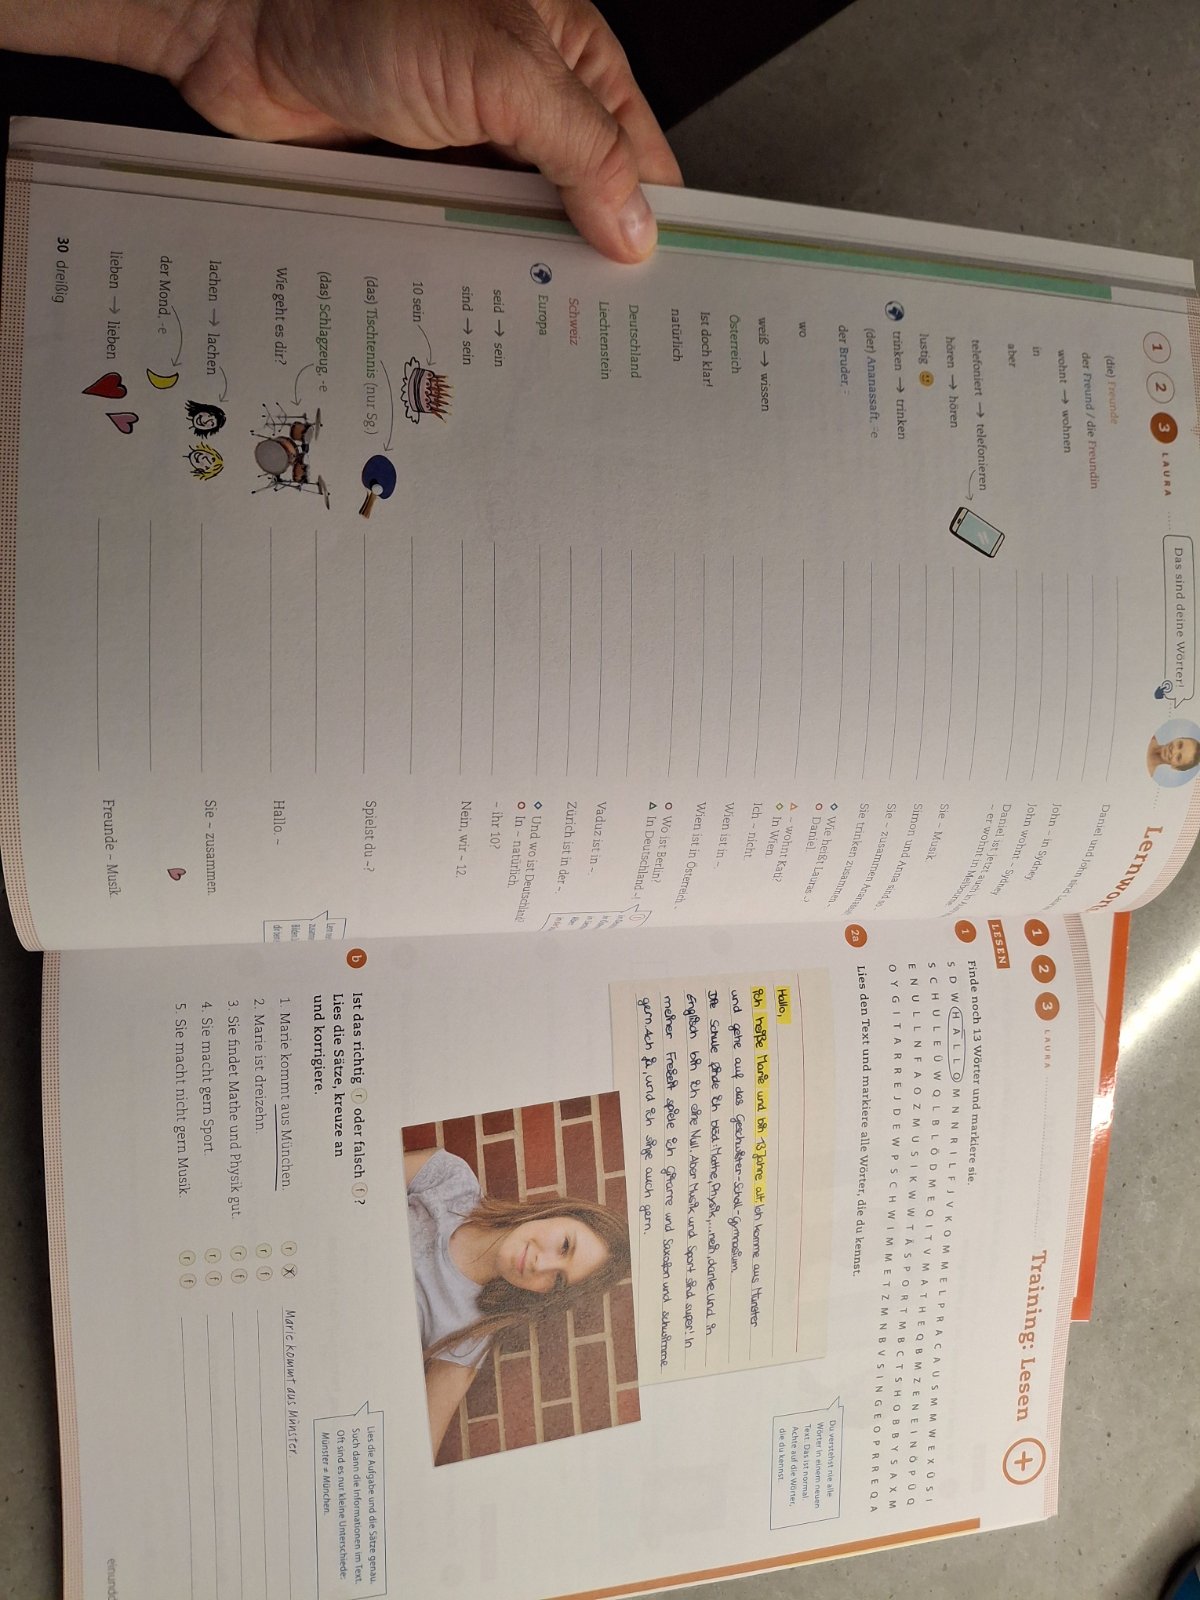 1 2 3 LAURA
Das sind deine Wörter!
(die) Freunde
der Freund / die Freundin
Daniel und John sind
wohnt → wohnen
in
John – in Sydney.
John wohnt ~ Sydney
aber
Daniel ist jetzt auch in
~ er wohnt in
telefoniert → telefonieren
Sie ~ Musik.
hören → hören
Simon und Anna sind so ~.
lustig
Sie ~ zusammen Ananassaft.
trinken → trinken
(der) Ananassaft, ⸚e
Sie trinken zusammen
der Bruder, ⸚
Wie heißt Lauras ~?
Daniel.
wo
~ wohnt Kati?
In Wien.
weiß → wissen
Ich ~ nicht.
Österreich
Wien ist in ~.
Ist doch klar!
Wien ist in Österreich.
natürlich
Wo ist Berlin?
In Deutschland ~!
Deutschland
Liechtenstein
Vaduz ist in ~.
Schweiz
Zürich ist in der ~.
Europa
Und wo ist Deutschland?
In ~ natürlich.
seid → sein
~ ihr 10?
sind → sein
Nein, wir ~ 12.
10 sein
(das) Tischtennis (nur Sg.)
Spielst du ~?
(das) Schlagzeug, -e
Wie geht es dir?
Hallo. ~
lachen → lachen
Sie ~ zusammen.
der Mond, -e
lieben → lieben
Freunde ~ Musik.
30 dreißig
1 2 3 LAURA
Training: Lesen +
LESEN
1 Finde noch 13 Wörter und markiere sie.
S D W H A L L O M N N R I L F J V K O M M E L P R A C A U S M M W E X Ü S I
S C H U L E Ü W Q L B L Ö D M E Q I T V M A T H E Q B M Z E N E I N Ö P Ü Q
E N U L L N F A O Z M U S I K W W T Ä S P O R T M B C T S H O B B Y S A X M
O Y G I T A R R E J D E W P S C H W I M M E T Z M N B V S I N G E O P R R E Q A
2a Lies den Text und markiere alle Wörter, die du kennst.
Hallo,
ich heiße Marie und bin 13 Jahre alt. Ich komme aus Münster
und gehe auf das Geschwister-Scholl-Gymnasium.
Die Schule finde ich blöd: Mathe, Physik, ... nein, danke. Und in
Englisch bin ich eine Null. Aber Musik und Sport sind super! In
meiner Freizeit spiele ich Gitarre und Saxofon und schwimme
gern. Ach ja, und ich singe auch gern.
Du verstehst nie alle
Wörter in einem neuen
Text. Das ist normal.
Achte auf die Wörter,
die du kennst.
b Ist das richtig r oder falsch f?
Lies die Sätze, kreuze an
und korrigiere.
Lies die Aufgabe und die Sätze genau.
Such dann die Informationen im Text.
Oft sind es nur kleine Unterschiede:
Münster ≠ München.
1. Marie kommt aus München. r X Marie kommt aus Münster.
2. Marie ist dreizehn. r f
3. Sie findet Mathe und Physik gut. r f
4. Sie macht gern Sport. r f
5. Sie macht nicht gern Musik. r f